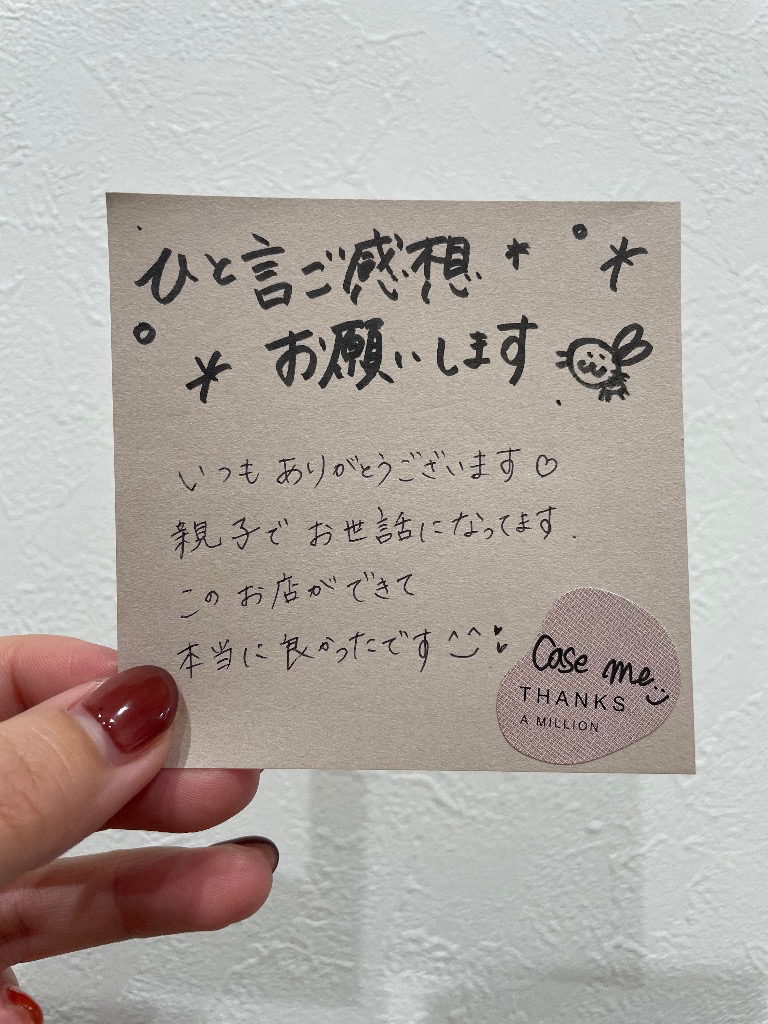 ひと言ご感想
お願いします
いつもありがとうございます♡
親子でお世話になってます.
このお店ができて
本当に良かったです
Case me
THANKS
A MILLION